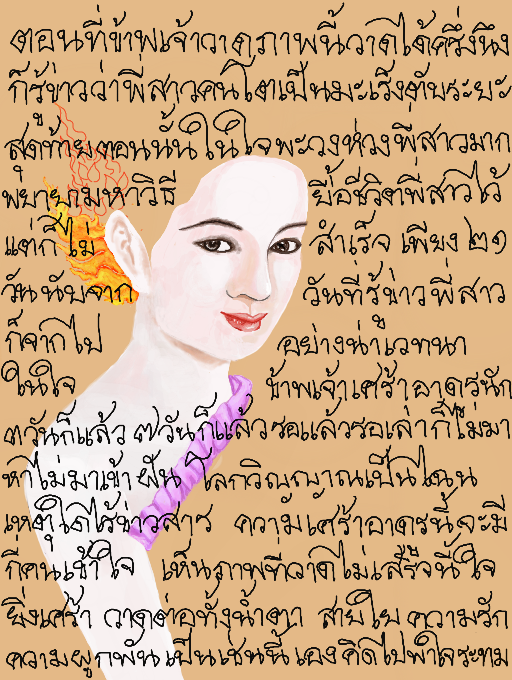 ตอนที่ข้าพเจ้าวาดภาพนี้วาดได้ครึ่งนึง
ก็รู้ข่าวว่าพี่สาวคนโตเป็นมะเร็งตับระยะ
สุดท้ายตอนนั้นในใจพะวงห่วงพี่สาวมาก
พยายามหาวิธี ยื้อชีวิตพี่สาวไว้
แต่ก็ไม่ สำเร็จ เพียง ๒๑
วันนับจาก วันที่รู้ข่าวพี่สาว
ก็จากไป อย่างน่าเวทนา
ในใจ ข้าพเจ้าเศร้าอาดูรนัก
๓วันก็แล้ว ๗วันก็แล้วรอแล้วรอเล่าก็ไม่มา
หาไม่มาเข้าฝัน โลกวิญญาณเป็นไฉน
เหตุใดไร้ข่าวสาร ความเศร้าอาดูรนี้จะมี
กี่คนเข้าใจ เห็นภาพที่วาดไม่เสร็จนี้ใจ
ยิ่งเศร้า วาดต่อทั้งน้ำตา สายใยความรัก
ความผูกพันเป็นเช่นนี้เองคิดไปพาใจระทม